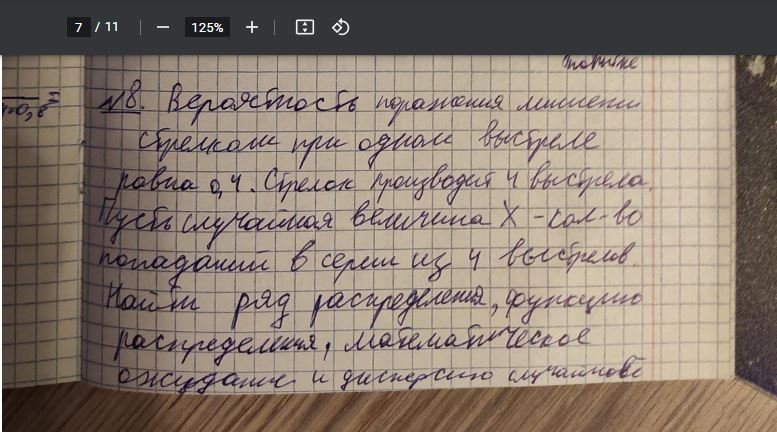 7 / 11 125%
№8. Вероятность поражения мишени
стрелком при одном выстреле
равна 0,4. Стрелок производит 4 выстрела.
Пусть случайная величина X - кол-во
попаданий в серии из 4 выстрелов.
Найти ряд распределения, функцию
распределения, математическое
ожидание и дисперсию случайной